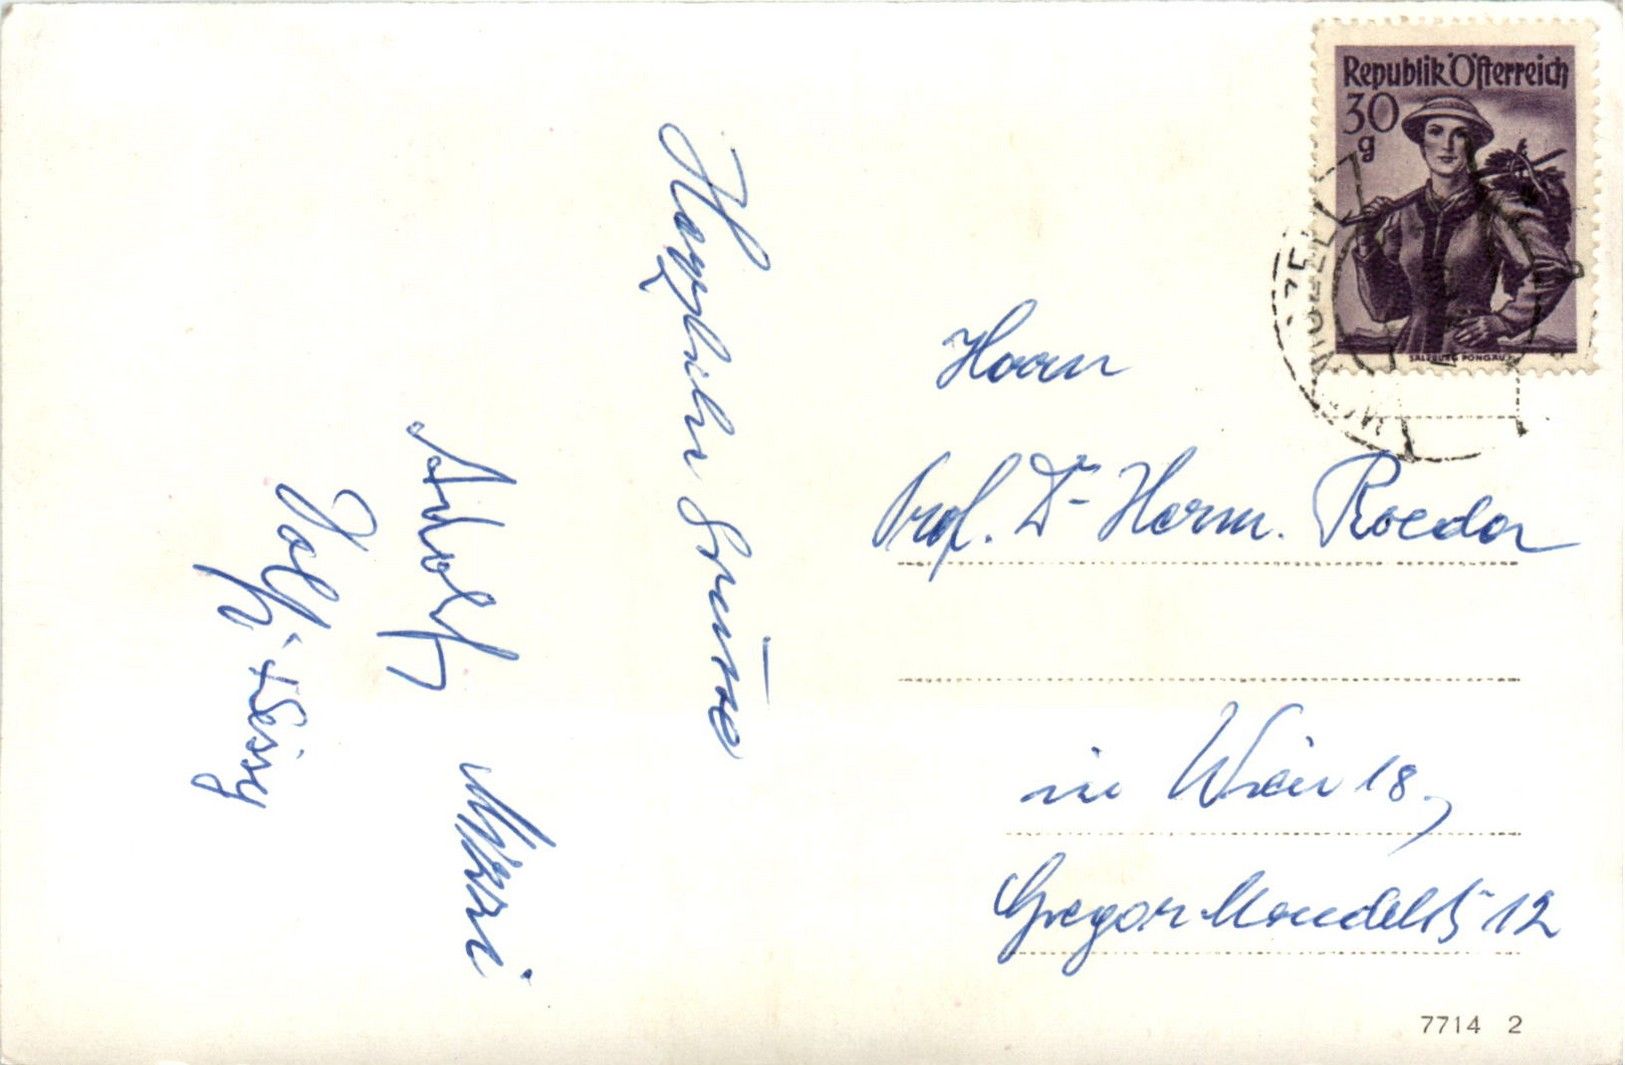 Herzliche Grüsse
Adolf Mizzi
+ Sissy
Republik Österreich
30
g
SALZBURG PONGAU
Herrn
Prof. Dr Herm. Roeder
in Wien 18,
Gregor Mendelstr 12
7714 2